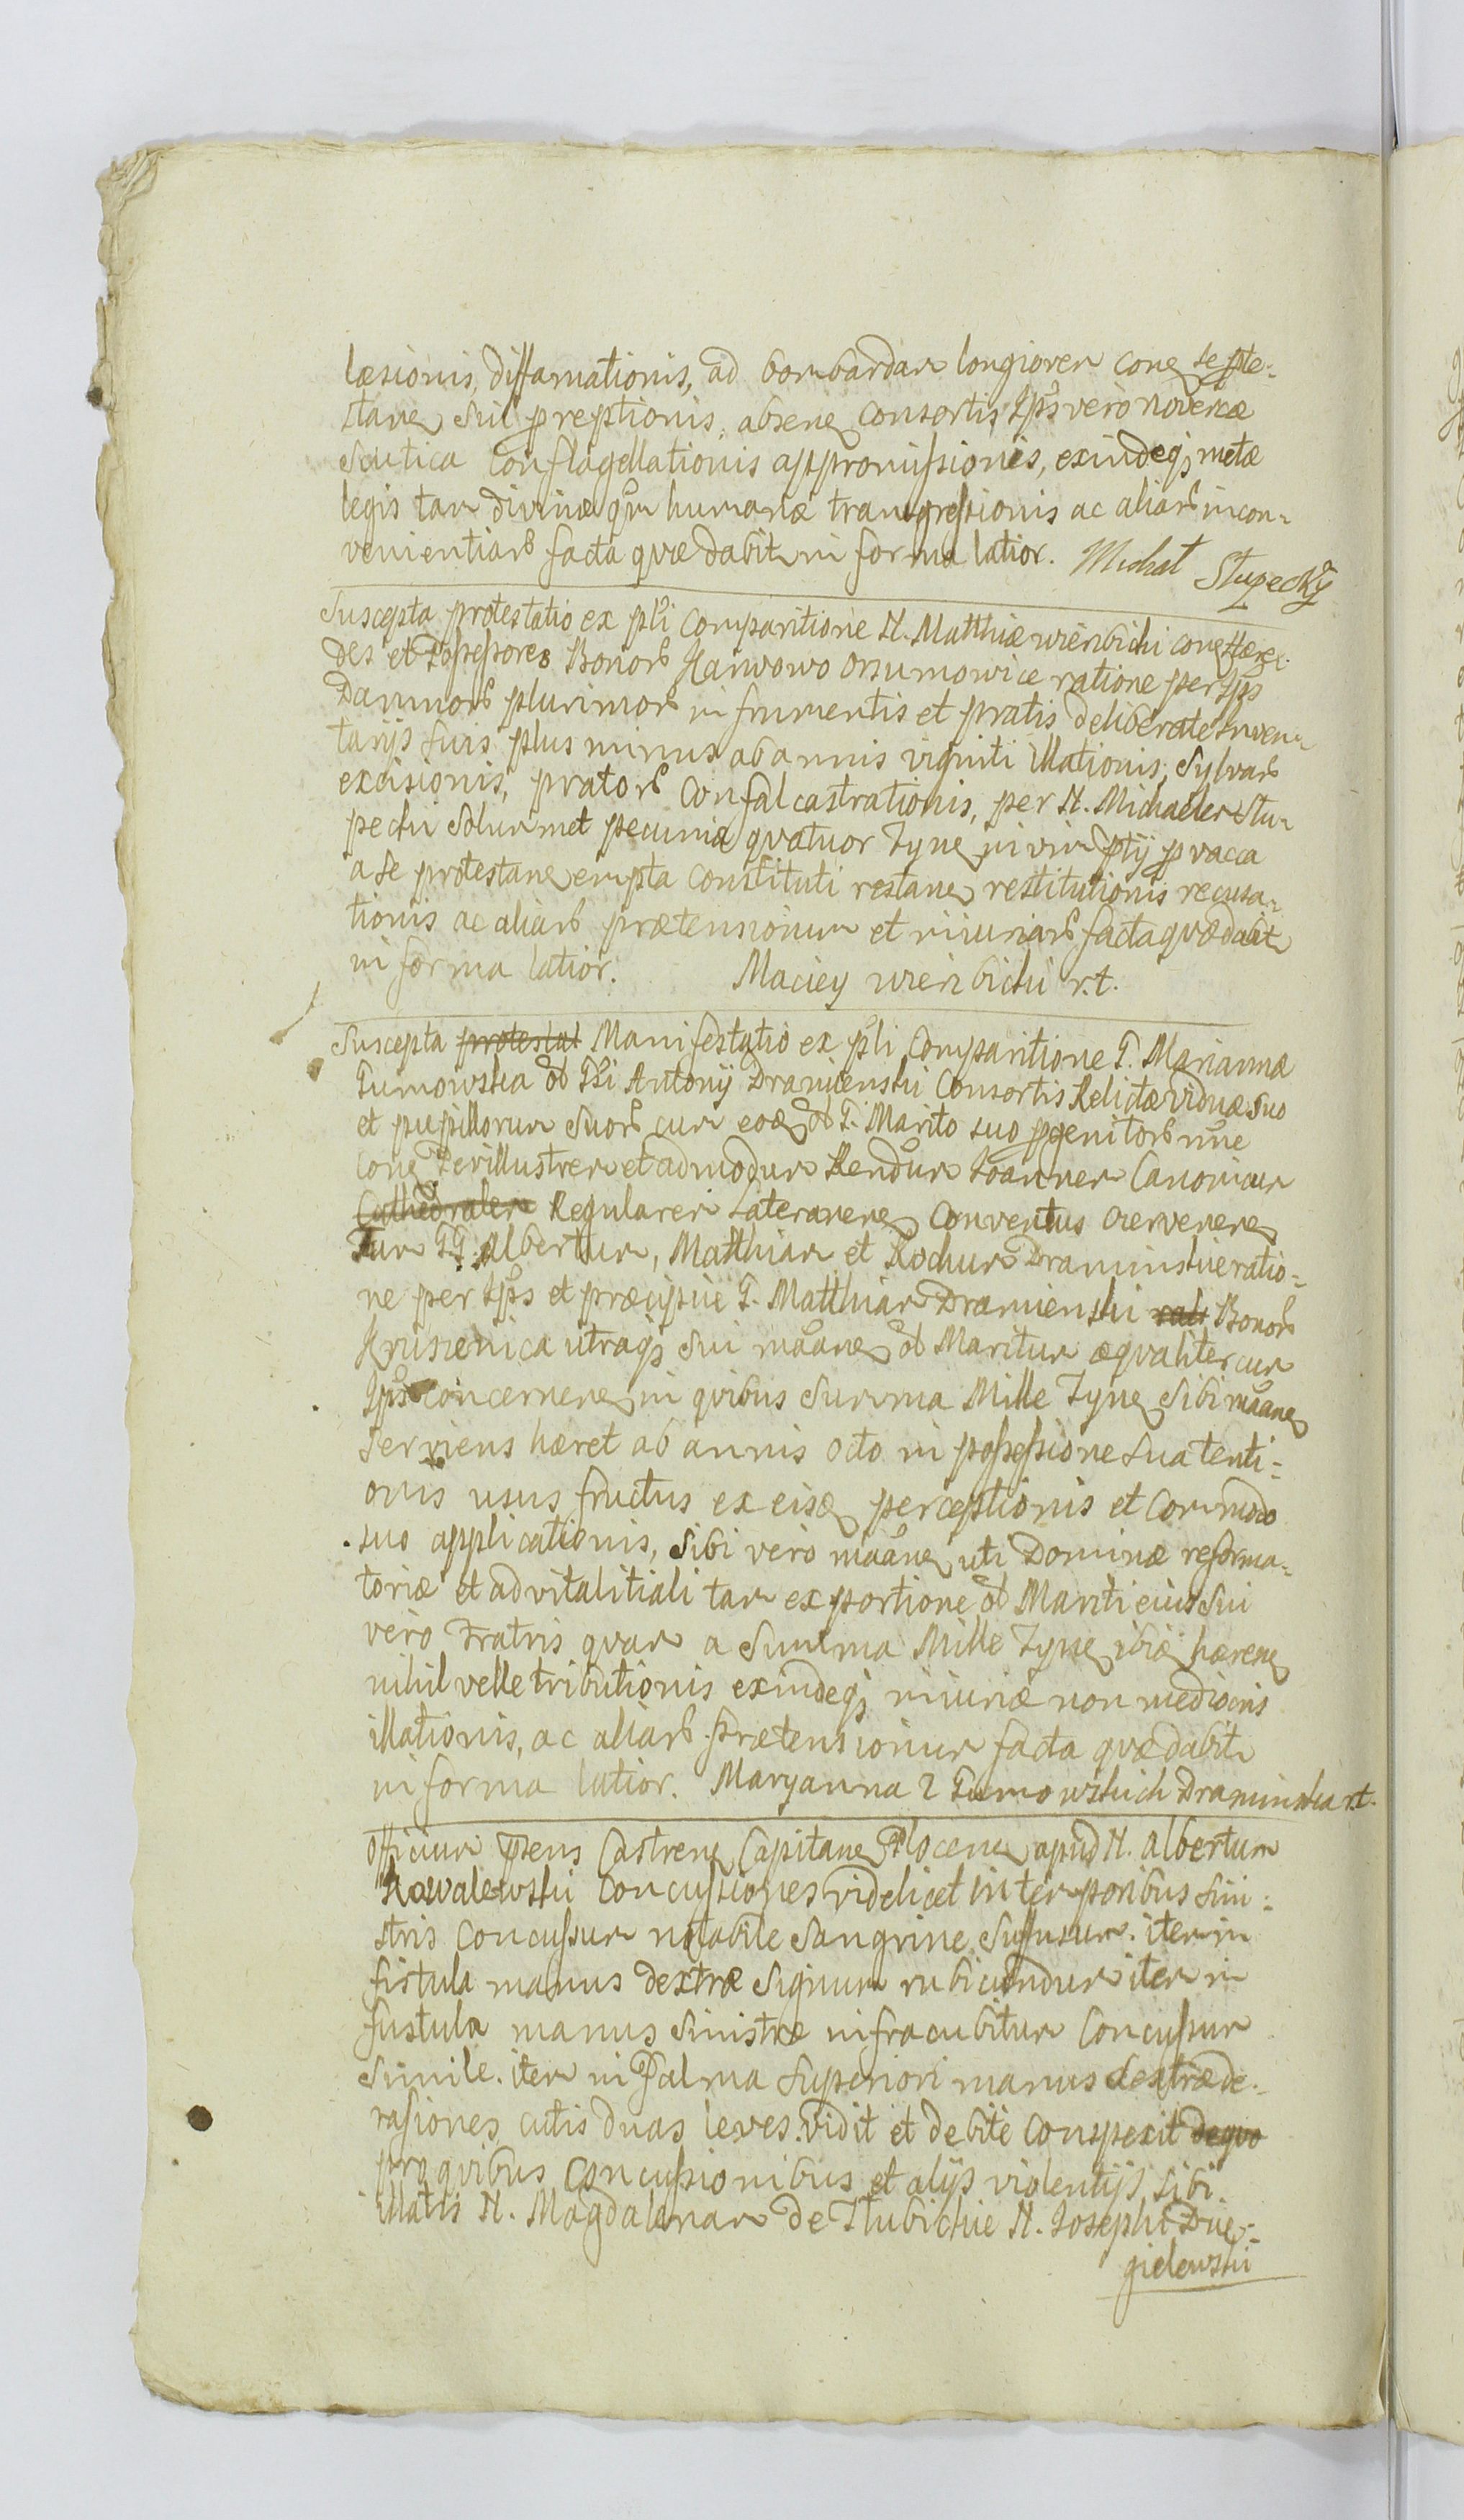 læsionis, diffamationis, ad bombardam longiorem con se prote-
stan sui preptionis, absen consortis Ips vero novercæ
scutica conflagellationis appromissionis, exindeq metæ
legis tam divinæ qm humanæ transgressionis ac aliar incon-
venientiar facta quæ dabit in forma latior. Michał Słupecky
Suscepta protestatio ex pli comparitione N. Matthiæ Wierzbicki con Hære-
des et Possessores Bonor Karwowo ratione per Ips
Damnor plurimor in frumentis et pratis deliberate Inven-
tarijs suis plus minus ab annis viginti illationis, Sylvar
excisionis, prator confalcastrationis, per N. Michaelem Słu-
pecki solummet pecuniæ quatuor Tyn in vim ptij p vacca
a se protestan empta constituti restan restitutionis recusa-
tionis ac aliar prætensionum et iniuriar facta quæ dabit
in forma latior. Maciey Wierzbicki r.t.
Suscepta protestat Manifestatio ex pli Comparitione G. Marianna
Tumowska od Gsi Antonij Dramienski Consortis Relictæ viduæ suo
et pupillorum suor cum eod od G. Marito suo pgenitor nne
con Perillustrem et admodum Rendum Joannem Canonicum
Cathedralem Regularem Lateranen Conventus Czerwenen
Tum GG. Albertum, Matthiam et Rochum Draminskie ratio-
ne per Ips et præcipue G. Matthiam Dramienski rati Bonor
Kruszenica utraq sui maane od Maritum æqualiter cum
Ips concernen in quibus summa Mille Tyn sibi maane
serviens hæret ab annis octo in possessione sua tenti-
onis usus fructus ex eisd perceptionis et commodo
suo applicationis, sibi vero maane uti Dominæ reforma-
toriæ et advitalitiali tam ex portione od Mariti eius sui
vero Fratris quam a summa Mille Tyn ibid hæren
nihil velle tributionis exindeq iniuriæ non mediocris
illationis, ac aliar prætensionum facta quæ dabit
in forma latior. Maryanna z Tumowskich Draminska r.t.
Officium pens Castren Capitan Plocen apud N. Albertum
Kowalewski concussiones videlicet in temporibus sini-
stris concussum notabile sangvine suffusum. item in
fistula manus dextræ signum rubicundum item in
fustula manus sinistræ infra cubitum concussum
simile. item in palma superiori manus dextræ de-
rasiones cutis duas leves. vidit et debite conspexit de quo
pro quibus concussionibus et alijs violentijs sibi
illatis N. Magdalenam de Głubickie N. Josephi Dzie-
gielewski